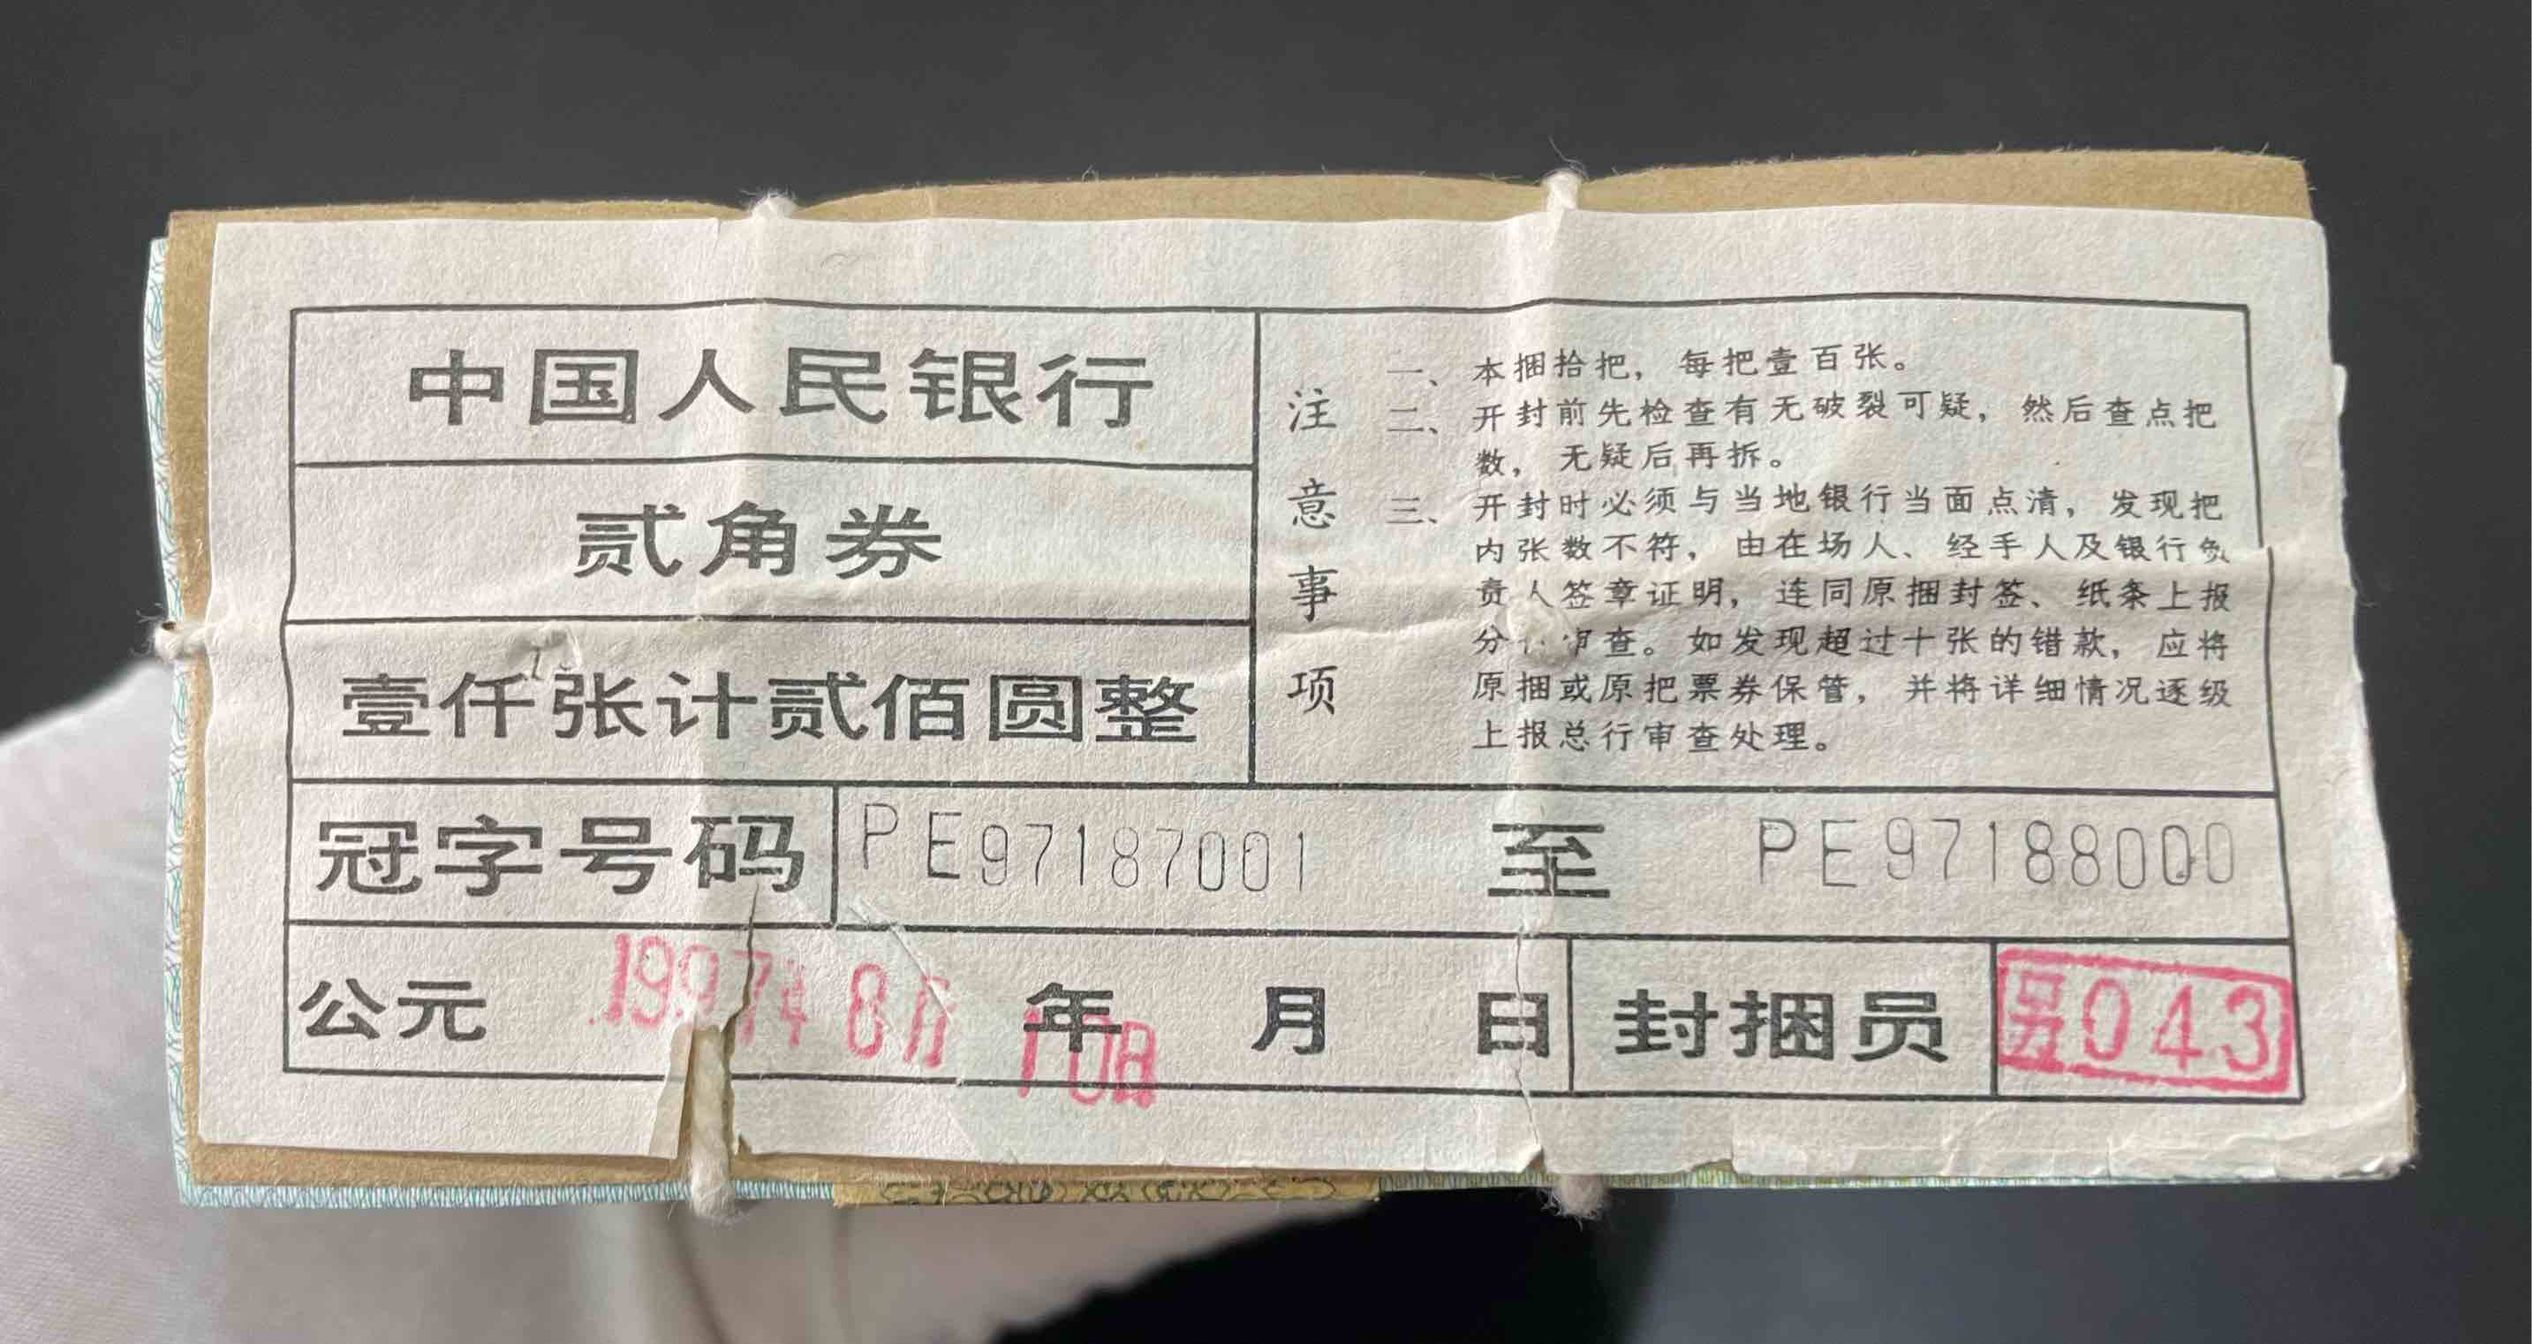 中国人民银行
贰角券
壹仟张计贰佰圆整
注意事项
一、本捆拾把，每把壹百张。
二、开封前先检查有无破裂可疑，然后查点把
数，无疑后再拆。
三、开封时必须与当地银行当面点清，发现把
内张数不符，由在场人、经手人及银行负
责人签章证明，连同原捆封签、纸条上报
分 审查。如发现超过十张的错款，应将
原捆或原把票券保管，并将详细情况逐级
上报总行审查处理。
冠字号码 PE97187001 至 PE97188000
公元 年 月 日 封捆员 号043
1997年8月10日